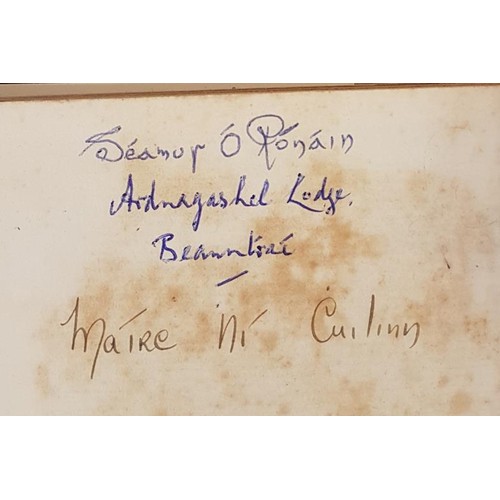 Séamus Ó Rónáin
Ardnagashel Lodge.
Beanntraí
Máire Ní Cuilinn